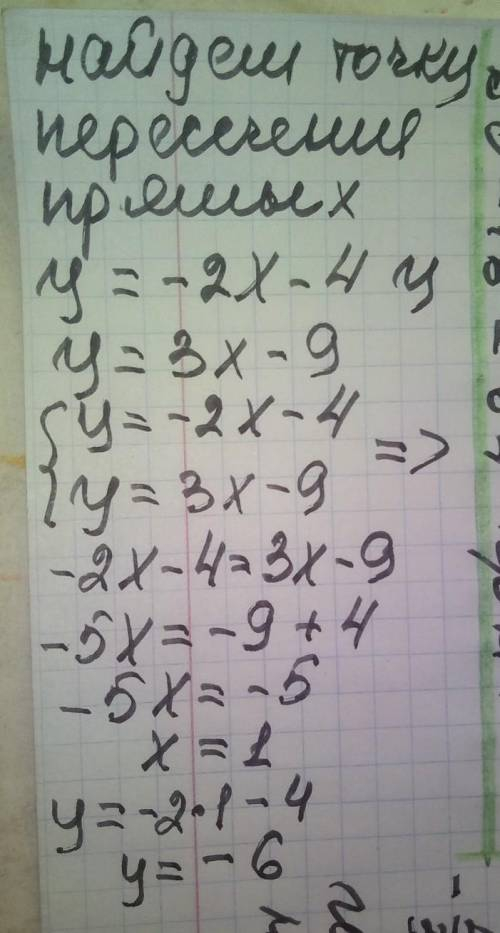 найдем точку
пересечения
прямых
y = -2x - 4 и
y = 3x - 9
{ y = -2x - 4
y = 3x - 9 =>
-2x - 4 = 3x - 9
-5x = -9 + 4
-5x = -5
x = 1
y = -2·1 - 4
y = -6